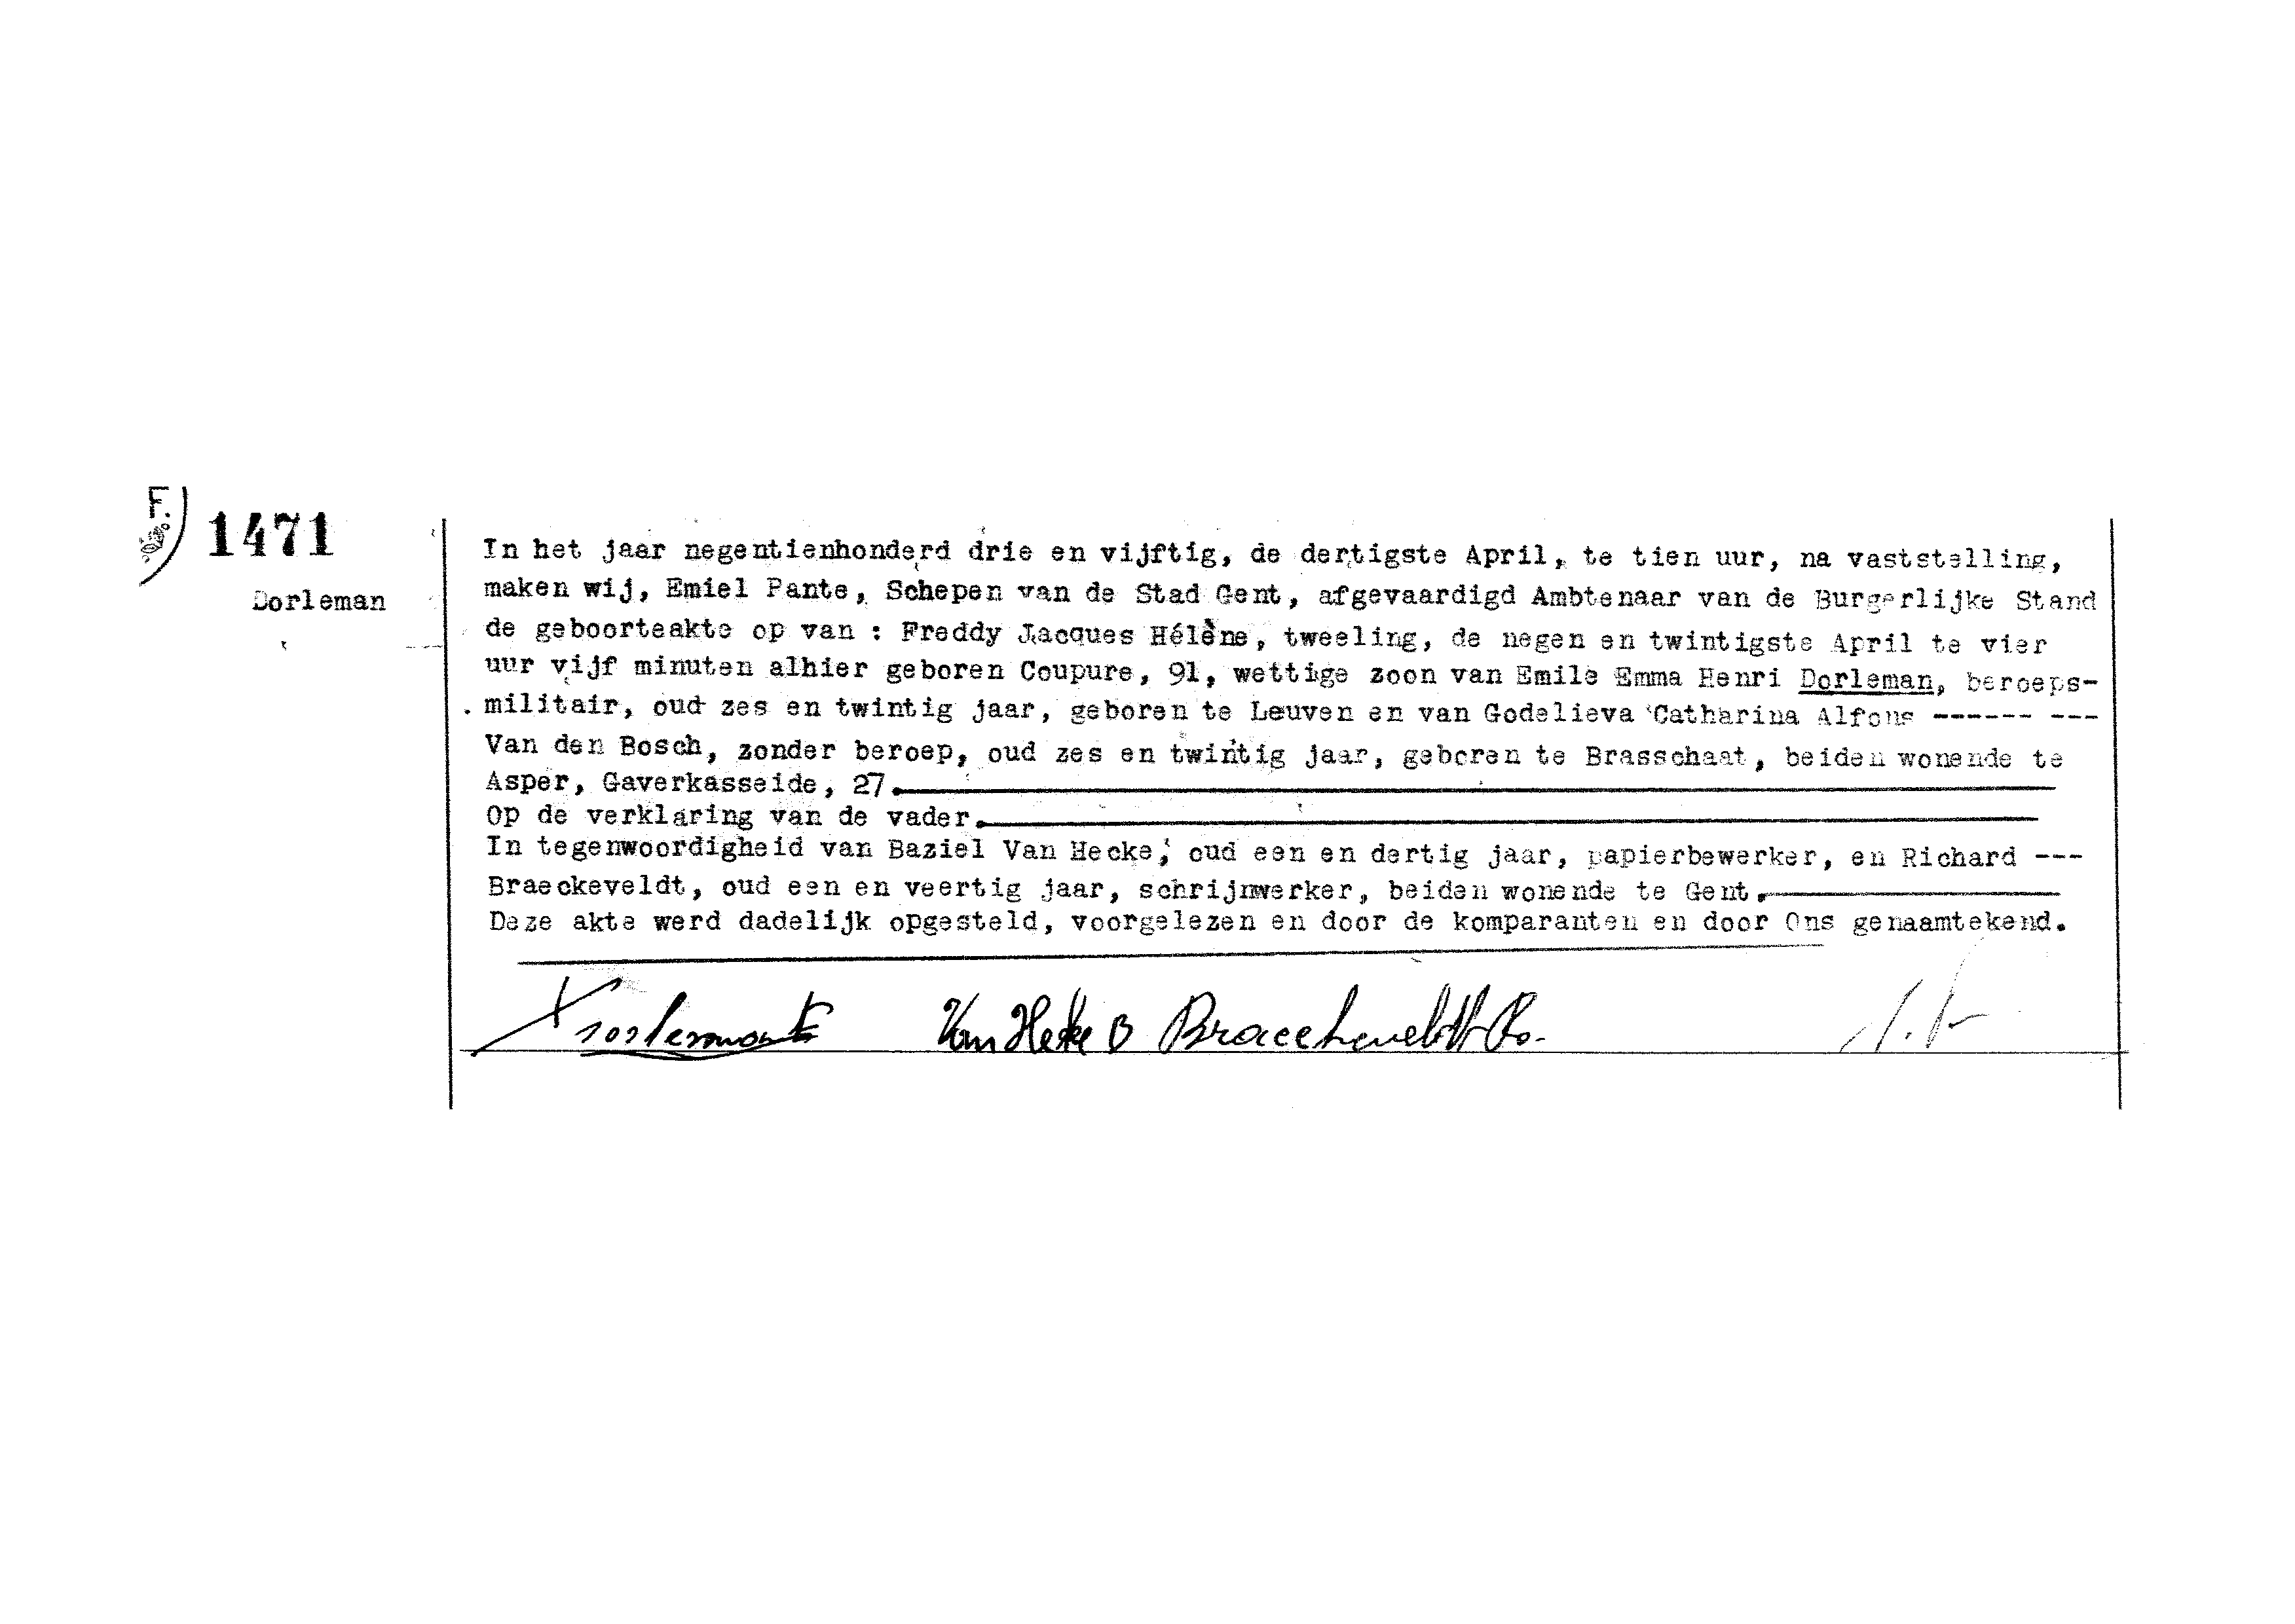 F.
1471
Dorleman
In het jaar negentienhonderd drie en vijftig, de dertigste April, te tien uur, na vaststelling,
maken wij, Emiel Pante, Schepen van de Stad Gent, afgevaardigd Ambtenaar van de Burgerlijke Stand
de geboorteakte op van : Freddy Jacques Hélène, tweeling, de negen en twintigste April te vier
uur vijf minuten alhier geboren Coupure, 91, wettige zoon van Emile Emma Henri Dorleman, beroeps-
militair, oud zes en twintig jaar, geboren te Leuven en van Godelieva Catharina Alfons ------ ---
Van den Bosch, zonder beroep, oud zes en twintig jaar, geboren te Brasschaat, beiden wonende te
Asper, Gaverkasseide, 27.
Op de verklaring van de vader.
In tegenwoordigheid van Baziel Van Hecke, oud een en dertig jaar, papierbewerker, en Richard ---
Braeckeveldt, oud een en veertig jaar, schrijnwerker, beiden wonende te Gent.
Deze akte werd dadelijk opgesteld, voorgelezen en door de komparanten en door Ons genaamtekend.
Van Hecke B Braeckeveldt R.